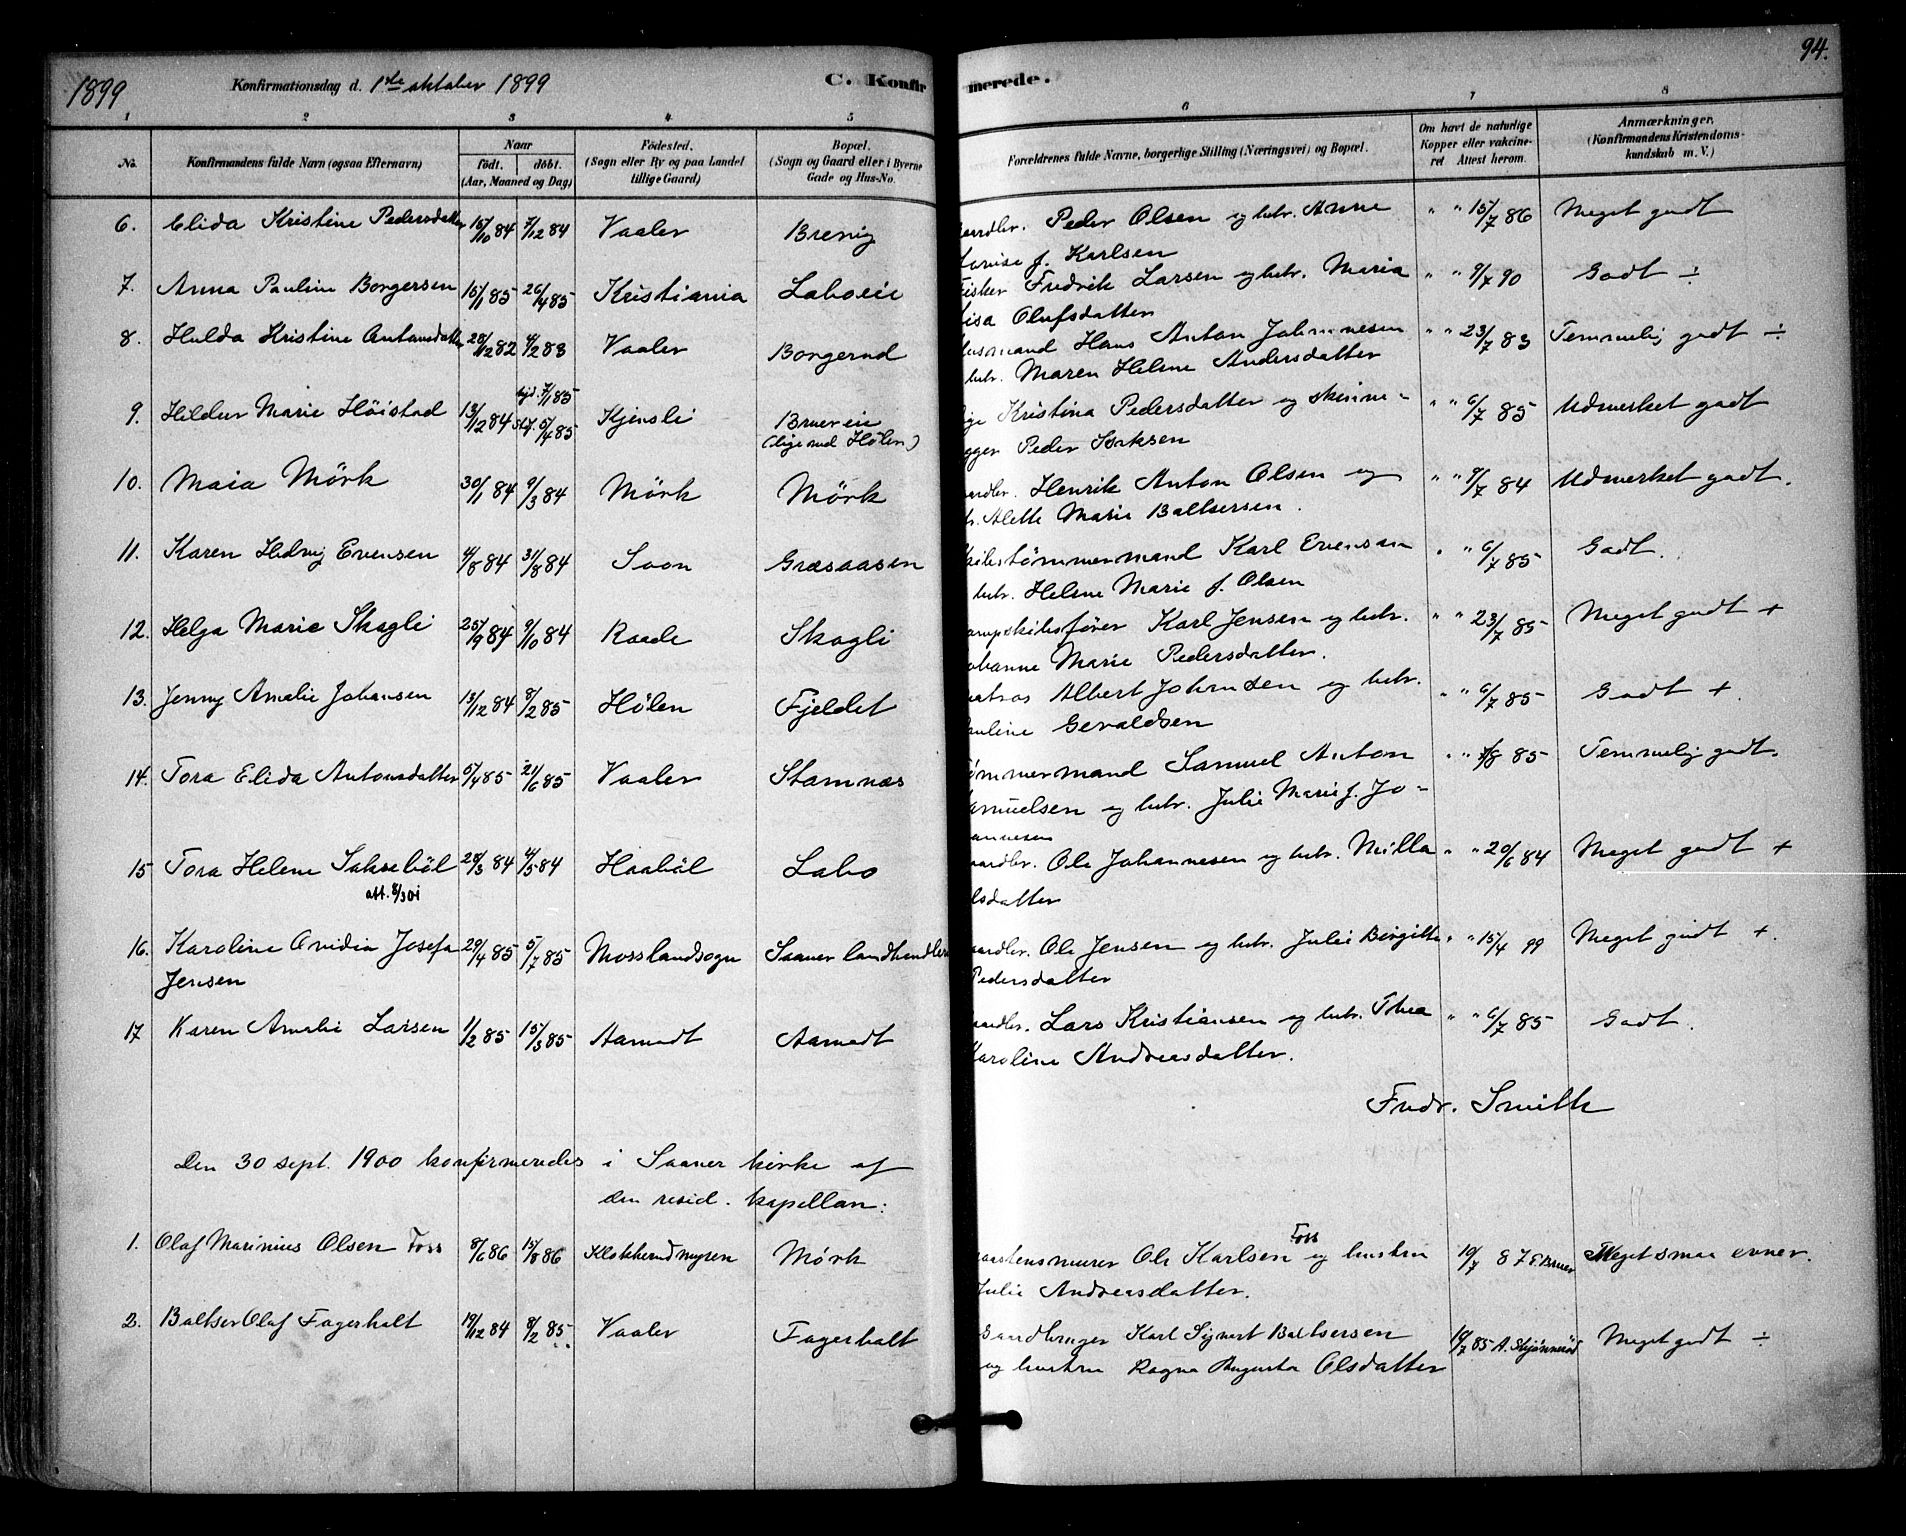 94.
1899 Konfirmationsdag d. 1ste oktober 1899 C. Konfirmerede.
1 2 3 4 5 6 7 8
No. Konfirmandens fulde Navn (ogsaa Efternavn) Naar født. døbt. (Aar, Maaned og Dag) Fødested. (Sogn eller By og paa Landet tillige Gaard) Bopæl. (Sogn og Gaard eller i Byerne Gade og Hus-No. Forældrenes fulde Navne, borgerlige Stilling (Næringsvei) og Bopæl. Om havt de naturlige Kopper eller vakcineret Attest herom. Anmærkninger. (Konfirmandens Kristendomskundskab m. V.)
6. Elida Kristine Pedersdatter 15/10 84 7/12 84 Vaaler Brevig Peder Olsen og hstr. Anne " " 15/7 86 Meget godt
f. Karlsen
7. Anna Pauline Borgersen 15/1 85 26/4 85 Kristiania Laboeie Fisker Fredrik Larsen og hstr. Maria " " 9/7 90 Godt ÷
Olufsdatter
8. Hulda Kristine Antonsdatter 28/12 82 4/2 83 Vaaler Borgerud Hans Anton Johannesen " " 23/7 83 Temmelig godt ÷
hstr. Maren Helene Andersdatter
9. Hildur Marie Høistad 13/12 84 hjd. 7/1 85 stf. 5/4 85 Kjensli Bruereie (lige ved Hølen) Kristina Pedersdatter og skinne- " " 6/7 85 Udmerket godt
Peder Isaksen
10. Maia Mörk 30/1 84 9/3 84 Mörk Mörk Henrik Anton Olsen og " " 9/7 84 Udmerket godt.
Alette Marie Baltsersen.
11. Karen Hedvig Evensen 4/8 84 31/8 84 Soon Græsaasen skibstømmermand Karl Evensen " " 6/7 85 Godt.
hstr. Helene Marie f. Olsen
12. Helga Marie Skogli 25/9 84 9/10 84 Raade Skogli dampskibsfører Karl Jensen og hstr. " " 23/7 85 Meget godt +
Johanne Marie Pedersdatter.
13. Jenny Amalie Johansen 13/12 84 8/2 85 Hølen Fjeldet Matros Albert Johansen og hstr. " " 6/7 85 Godt +.
Pauline Gevaldsen
14. Tora Elida Antonsdatter 5/4 85 21/6 85 Vaaler Stamnæs Tømmermand Samuel Anton " " 8/8 85 Temmelig godt.
Samuelsen og hstr. Julie Marie f. Jo-
hannesen
15 Tora Helene Saksebøl 28/3 84 4/5 84 Haabøl Labo Gaardbr. Ole Johannesen og hstr. Milla " " 20/6 84 Meget godt +
att. 8/3 01 Olsdatter
16. Karoline Ovidia Josefa 29/4 85 5/7 85 Mosslandsogn Saaner landhandleri Gaardbr. Ole Jensen og hstr. Julie Birgitte " " 15/4 99 Meget godt +.
Jensen Pedersdatter
17 Karen Amalie Larsen 1/2 85 15/3 85 Aamodt Aamodt Gaardbr. Lars Kristiansen og hstr. Thea " " 6/7 85 Godt.
Karoline Andreasdatter.
Fredr. Smith
Den 30 sept. 1900 konfirmeredes i Saaner kirke af
den resid. kapellan:
1. Olaf Marinius Olsen Foss 8/6 86 15/8 86 Klokkerudmyren Mørk Ole Karlsen Foss og hustru 19/7 87 E. Bruer Meget smaa evner.
Julie Andreasdatter.
2. Baltser Olaf Fagerholt 19/12 84 8/2 85 Vaaler Fagerholt Gaardbruger Karl Sigvart Baltsersen 10/7 85 A. Skjønnerød Meget godt ÷
og hustru Ragna Augusta Olsdatter